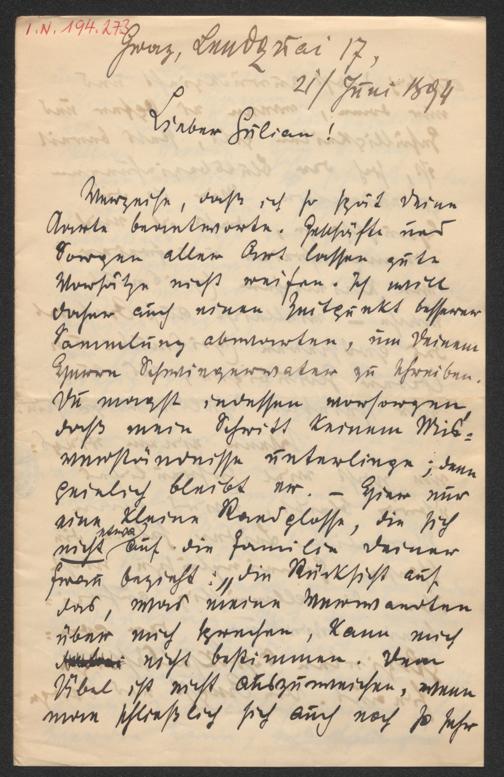 I.N. 194.273
Graz, Lendquai 17,
21/ Juni 1894
Lieber Gilian!
Verzeihe, daß ich so spät deine
Karte beantworte. Geschäfte und
Sorgen aller Art lassen gute
Vorsätze nicht reifen. Ich will
daher auch einen Zeitpunkt besserer
Sammlung abwarten, um Deinem
Herrn Schwiegervater zu schreiben.
Du magst indessen vorsorgen,
daß mein Schritt keinem Mis¬
verständnisse unterliege; denn
peinlich bleibt er. – Hier nur
eine kleine Randglosse, die sich
nicht etwa auf die Familie Deiner
Frau bezieht: „die Rücksicht auf
das, was meine Verwandten
über mich sprechen, kann mich
nicht bestimmen. Dem
Übel ist nicht auszuweichen, wenn
man schließlich sich auch noch so sehr